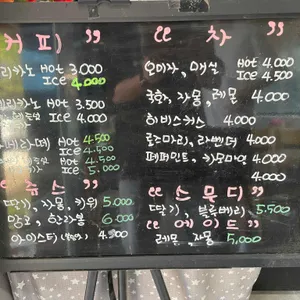 커피 ”
리카노 Hot 3.000
Ice 4.000
리카노 Hot 3.500
Ice 4.000
Hot 4.500
Ice 4.500
Hot 4.500
Ice 5.000
쥬스 ”
딸기, 자몽, 키위 5.000
망고, 한라봉 6.000
아이스티 4.500
“ 차 ”
오미자, 매실 Hot 4.000
Ice 4.500
국화, 자몽, 레몬 4.000
히비스커스 4.000
로즈마리, 라벤더 4.000
페퍼민트, 카모마일 4.000
4.000
“ 스무디 ”
딸기, 블루베리 5.500
“ 에이드 ”
레몬, 자몽 5.000